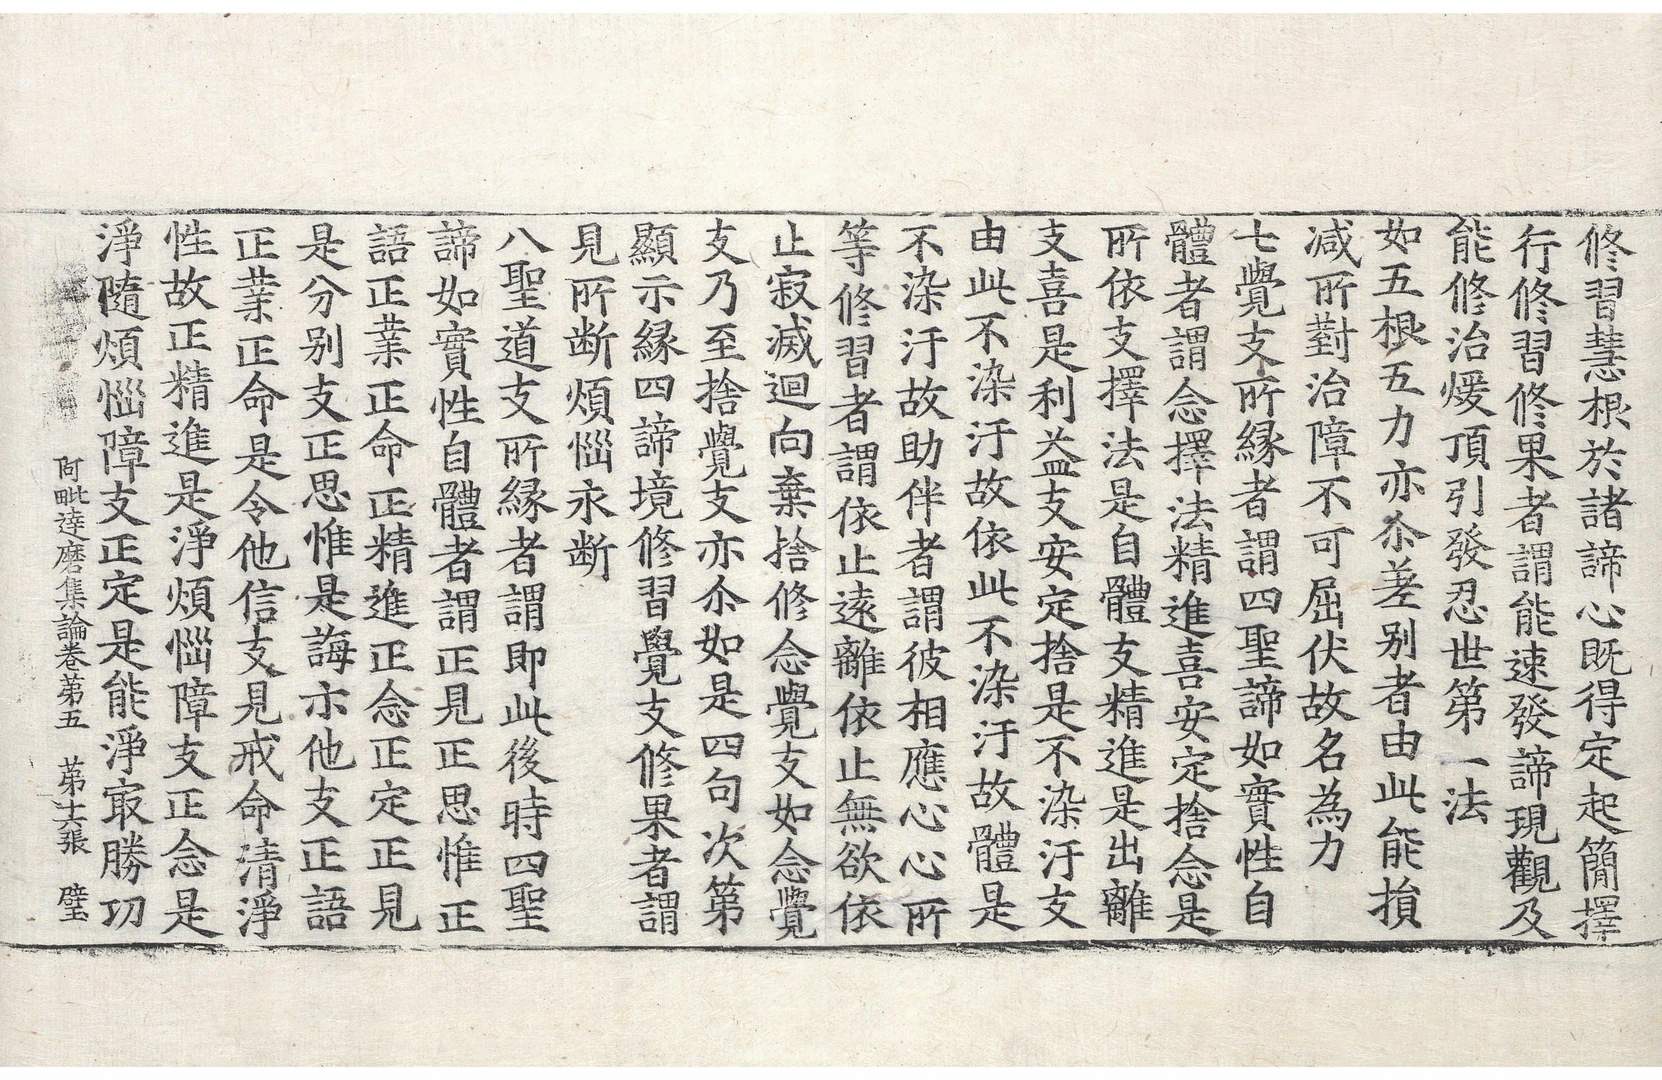 修習慧根於諸諦心既得定起簡擇
行修習修果者謂能速發諦現觀及
能修治煖頂引發忍世第一法
如五根五力亦尒差别者由此能損
减所對治障不可屈伏故名為力
七覺支所緣者謂四聖諦如實性自
體者謂念擇法精進喜安定捨念是
所依支擇法是自體支精進是出離
支喜是利益支安定捨是不染汙支
由此不染汙故依此不染汙故體是
不染汙故助伴者謂彼相應心心所
等修習者謂依止遠離依止無欲依
止寂滅迴向棄捨修念覺支如念覺
支乃至捨覺支亦尒如是四句次第
顯示緣四諦境修習覺支修果者謂
見所断煩惱永断
八聖道支所緣者謂即此後時四聖
諦如實性自體者謂正見正思惟正
語正業正命正精進正念正定正見
是分别支正思惟是誨示他支正語
正業正命是令他信支見戒命清淨
性故正精進是淨煩惱障支正念是
淨隨煩惱障支正定是能淨㝡勝功
阿毗達磨集論卷苐五　苐十六張　璧